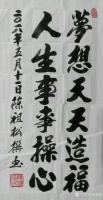 夢想天天造福
人生事事操心
二〇一八年五月十二日徐祖松撰書